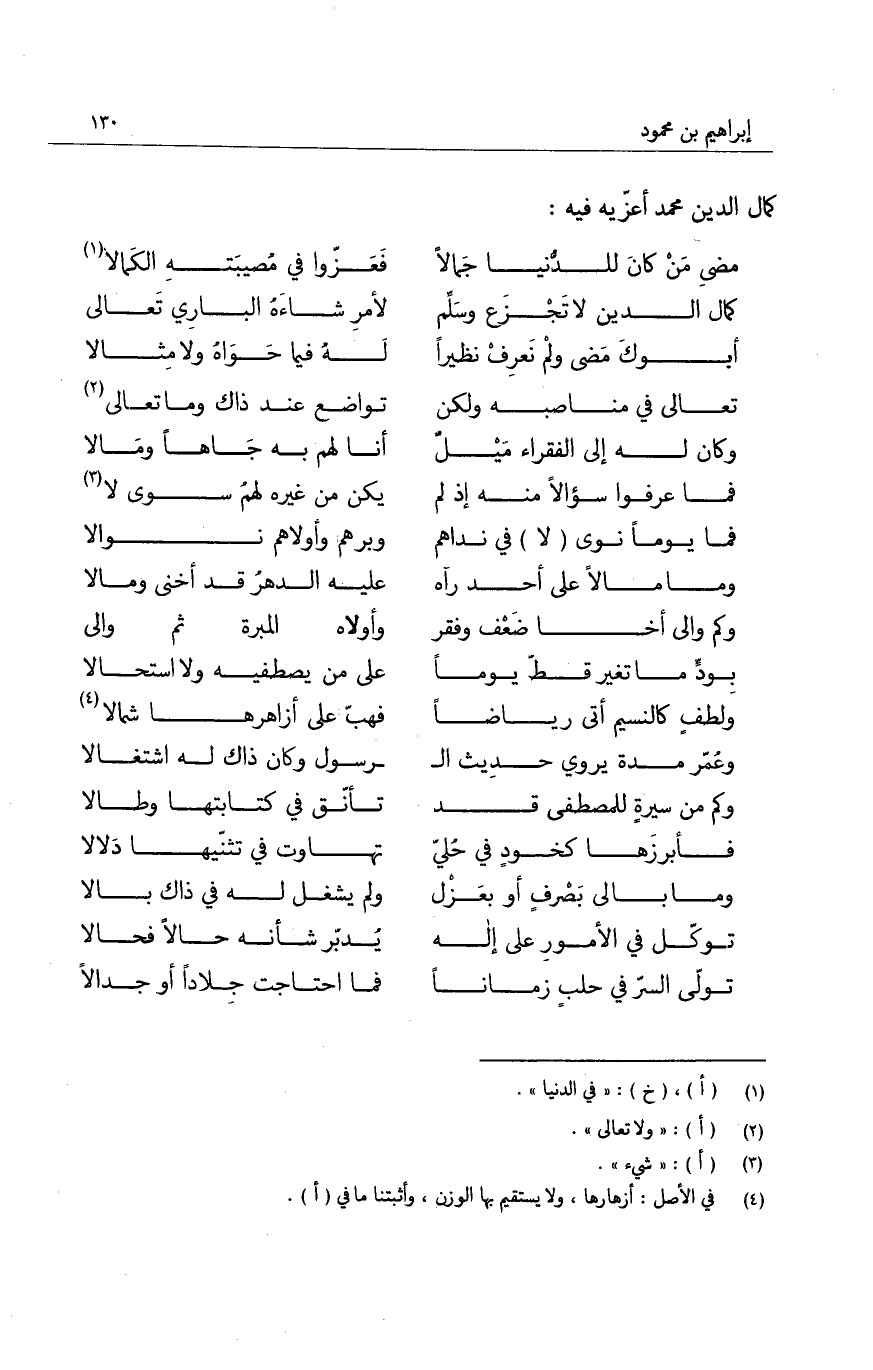 إبراهيم بن محمود ١٣٠
كمال الدين محمد أعزّيه فيه :
مضى مَنْ كانَ للدُّنيا جَمالاً فَعَزّوا في مُصيبَتهِ الكَمالا(١)
كمال الدين لا تَجْزَع وسَلِّم لأمرِ شاءَهُ الباري تَعالى
أبوكَ مَضى ولمْ نَعرِفْ نظيراً لَهُ فيما حَوَاهُ ولا مِثالا
تعالى في مناصبه ولكن تواضع عند ذاك وما تعالى(٢)
وكان له إلى الفقراء مَيْلٌ أنا لهم به جَاهاً ومَالا
فما عرفوا سؤالاً منه إذ لم يكن من غيره لهمُ سوى لا(٣)
فما يوماً نوى ( لا ) في نداهم وبرهم وأولاهم نوالا
وما مالاً على أحد رآه عليه الدهرُ قد أخنى ومالا
وكم والى أخا ضَعْف وفقر وأولاه المبرة ثم والى
بِودٍّ ما تغير قطّ يوماً على من يصطفيه ولا استحالا
ولطفٍ كالنسيم أتى رياضاً فهبّ على أزاهرها شمالا(٤)
وعُمّر مدة يروي حديث الـ ـرسول وكان ذاك له اشتغالا
وكم من سيرةٍ للمصطفى قد تأنّق في كتابتها وطالا
فأبرزَها كخودٍ في حُليّ تهاوت في تثنّيها دَلالا
وما بالى بَصْرفٍ أو بعَزْل ولم يشغل له في ذاك بالا
توكّل في الأمورِ على إلٰه يُدبّر شأنه حالاً فحالا
تولّى السرّ في حلبٍ زماناً فما احتاجت جِلاداً أو جدالاً
(١) ( أ ) ، ( خ ) : « في الدنيا » .
(٢) ( أ ) : « ولا تعالى » .
(٣) ( أ ) : « شيء » .
(٤) في الأصل : أزهارها ، ولا يستقيم بها الوزن ، وأثبتنا ما في ( أ ) .